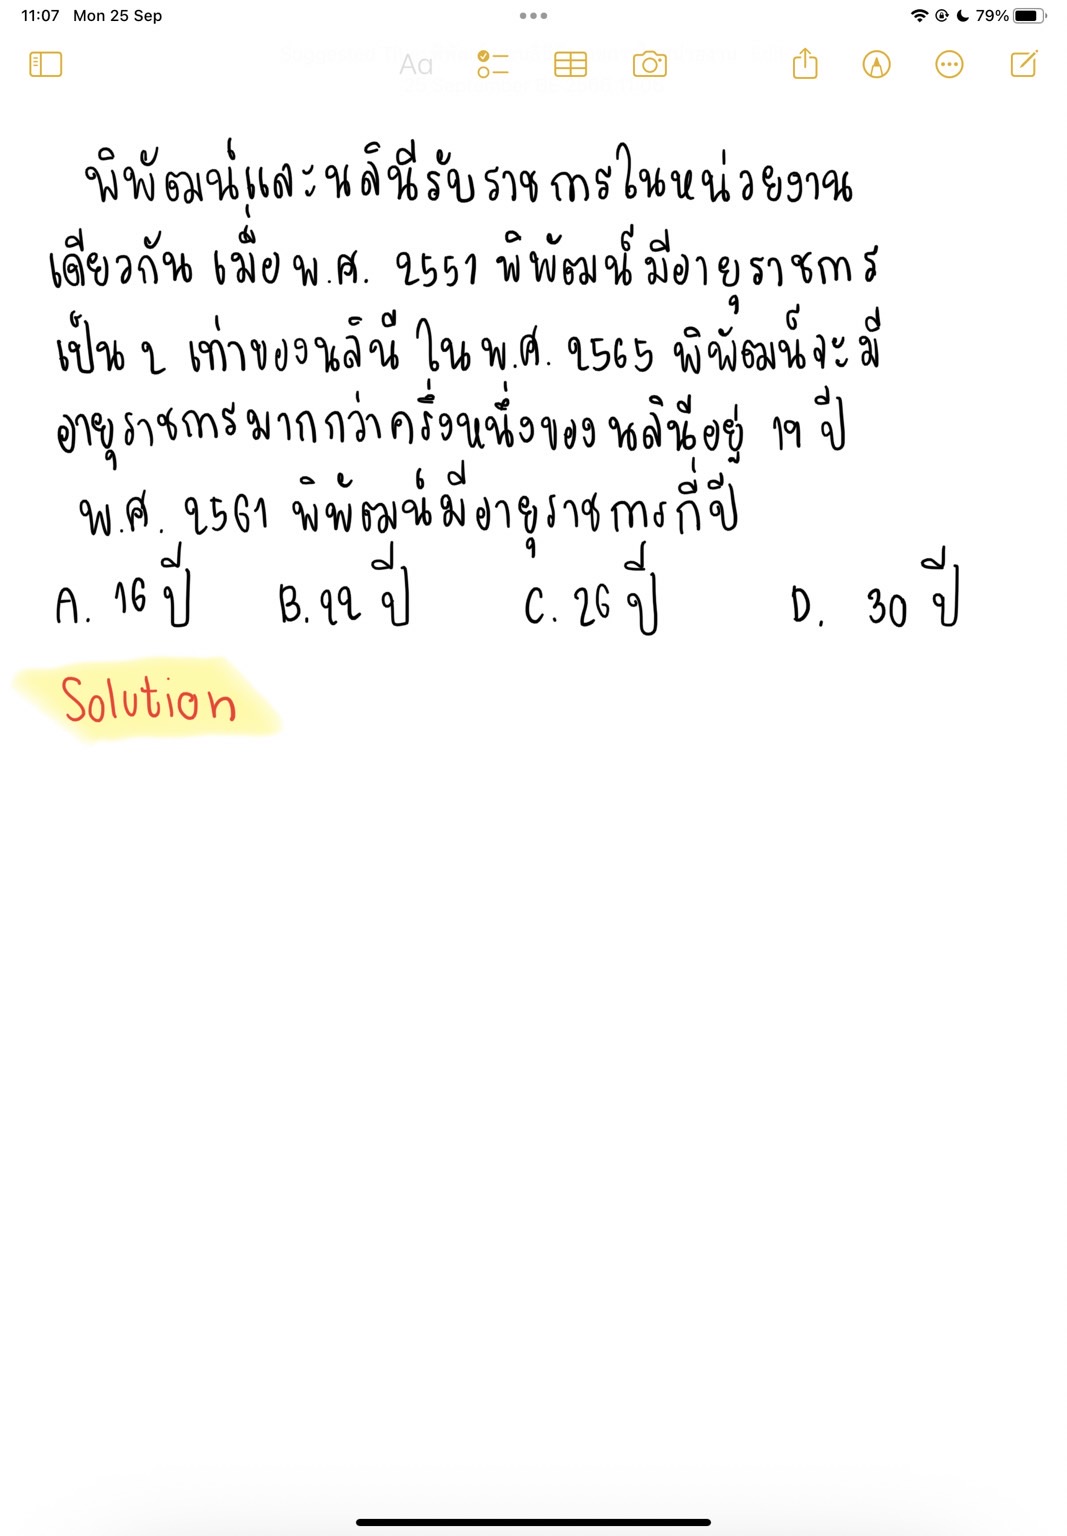 11:07 Mon 25 Sep
79%
Aa
พิพัฒน์และนลินีรับราชการในหน่วยงาน
เดียวกัน เมื่อ พ.ศ. 2551 พิพัฒน์มีอายุราชการ
เป็น 2 เท่าของนลินี ใน พ.ศ. 2565 พิพัฒน์จะมี
อายุราชการมากกว่าครึ่งหนึ่งของนลินีอยู่ 19 ปี
พ.ศ. 2561 พิพัฒน์มีอายุราชการกี่ปี
A. 16 ปี B. 22 ปี C. 26 ปี D. 30 ปี
Solution